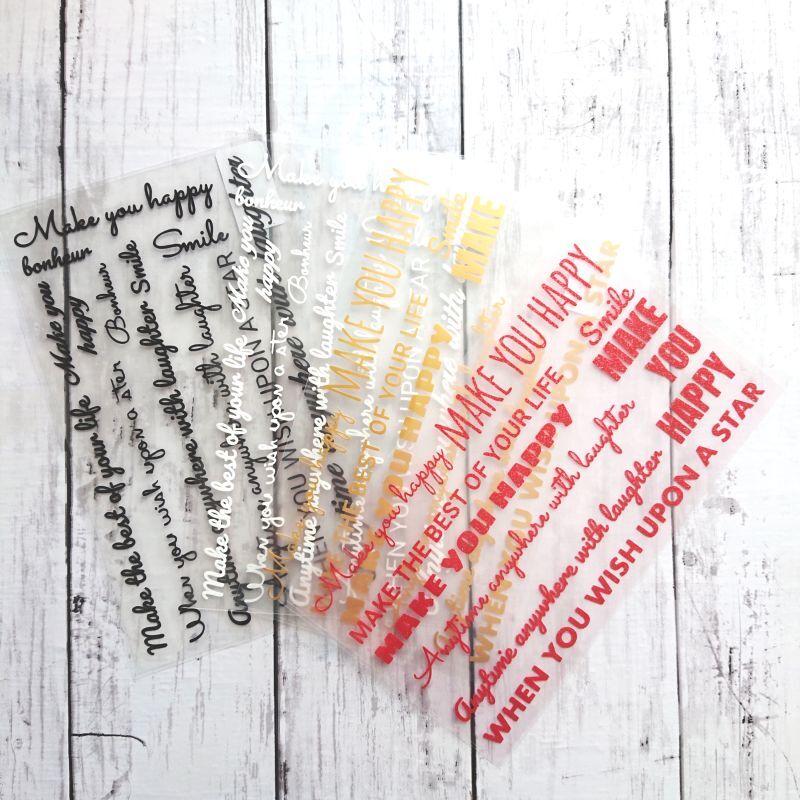 Make you happy
bonheur
Smile
Make you
happy
Bonheur
Smile
Make the best of your life
When you wish upon a ster
Anytime anywhere with laughter
with laughter
Make you happy
bonheur
Make you
happy
Bonheur
Smile
Make the best of your life
When you wish upon a ster
Anytime anywhere with laughter
MAKE YOU HAPPY
Smile
MAKE
THE BEST OF YOUR LIFE
YOU HAPPY
WHEN YOU WISH UPON A STAR
MAKE YOU HAPPY
Smile
MAKE
YOU
HAPPY
Make you happy
MAKE THE BEST OF YOUR LIFE
MAKE YOU HAPPY
Anytime anywhere with laughter
Anytime anywhere with laughter
WHEN YOU WISH UPON A STAR